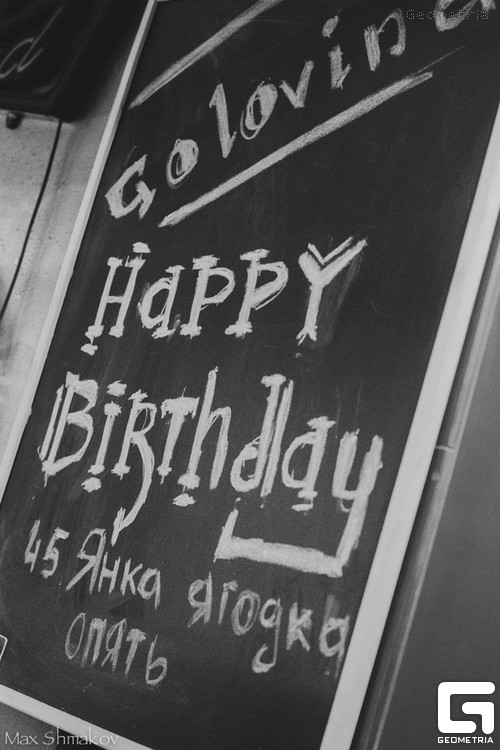 Geometria
Golovina
HAPPY
BiRThday
45 Янка ягодка
опять
Max Shmakov
GEOMETRIA